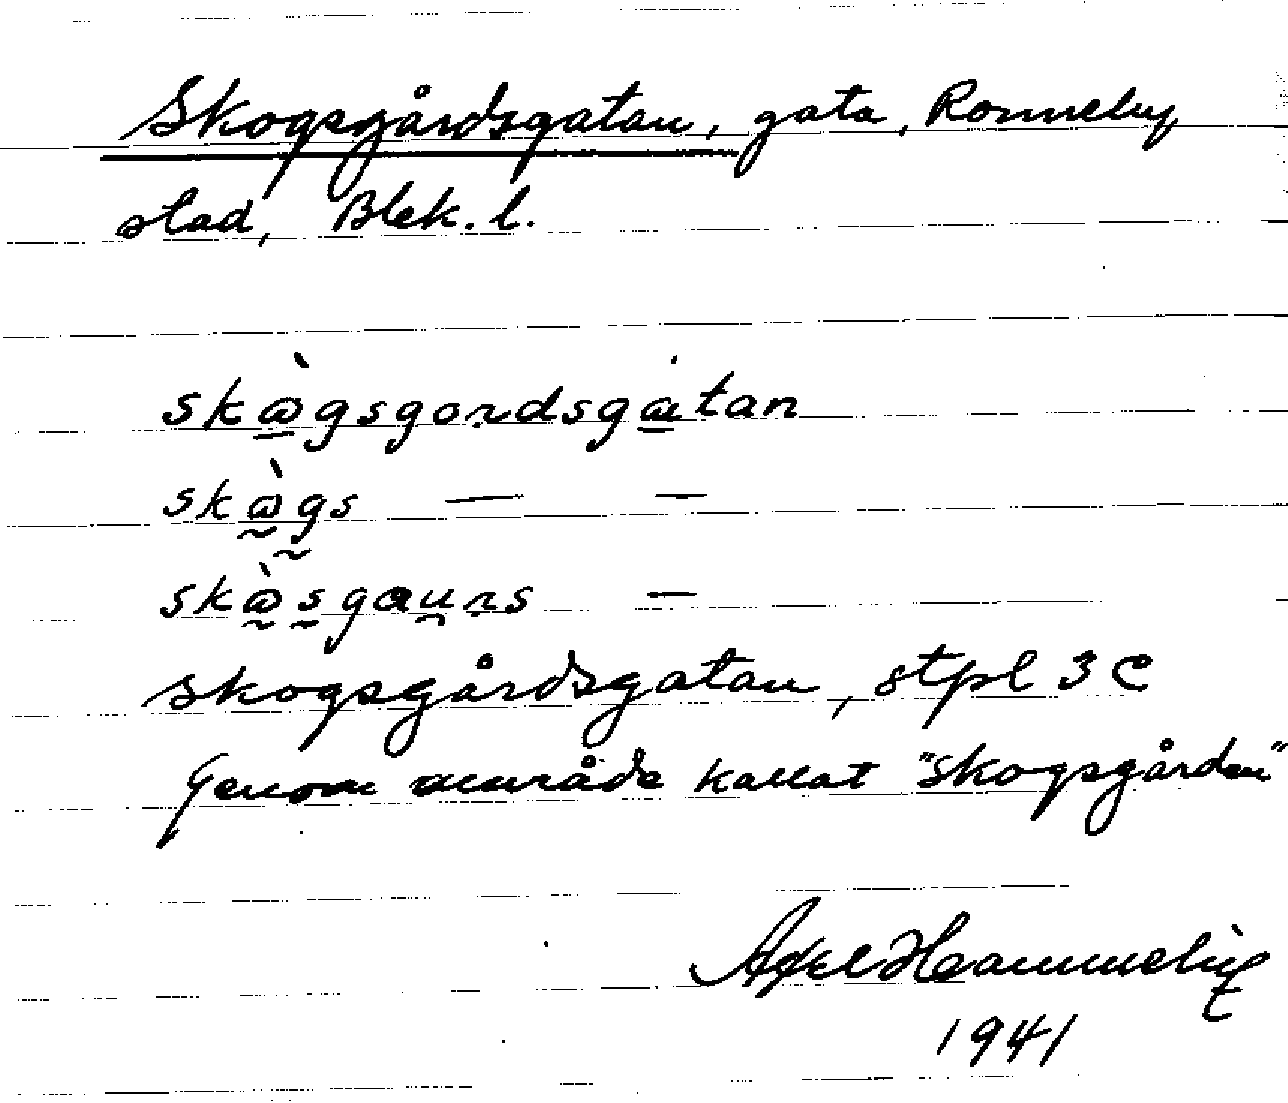 Skogsgårdsgatan, gata, Ronneby
stad, Blek. l.
skàgsgordsgatan
skàgs — —
skàsgaurs —
Skogsgårdsgatan, stpl 3 C
Genom område kallat "Skogsgården"
Axel
1941